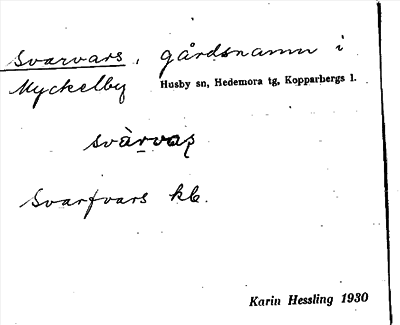 Svarvars, gårdsnamn i
Myckelby Husby sn, Hedemora tg, Kopparbergs l.
svàrvaș
Svarfvars kb.
Karin Hessling 1930